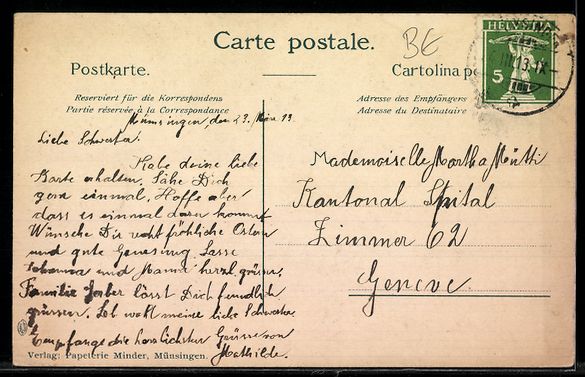 Carte postale.
BE
Postkarte.
Cartolina po
Reserviert für die Korrespondenz
Partie réservée à la Correspondance
Adresse des Empfängers
Adresse du Destinataire
HELVETIA
5
13.IX
Münsingen, den 23. März 13.
Liebe Schwester.
Habe deine liebe
Karte erhalten, Sähe Dich
gern einmal, Hoffe aber
dass es einmal dazu kommt
Wünsche Dir recht fröhliche Ostern
und gute Genesung. Lasse
und Mama herzl. grüssen,
Familie lässt Dich freundlich
grüssen. Leb wohl meine liebe Schwester
Empfange die herzlichsten Grüsse von
Mathilde.
Mademoiselle Martha Mütti
Kantonal Spital
Zimmer 62
Geneve
Verlag: Papeterie Minder, Münsingen.